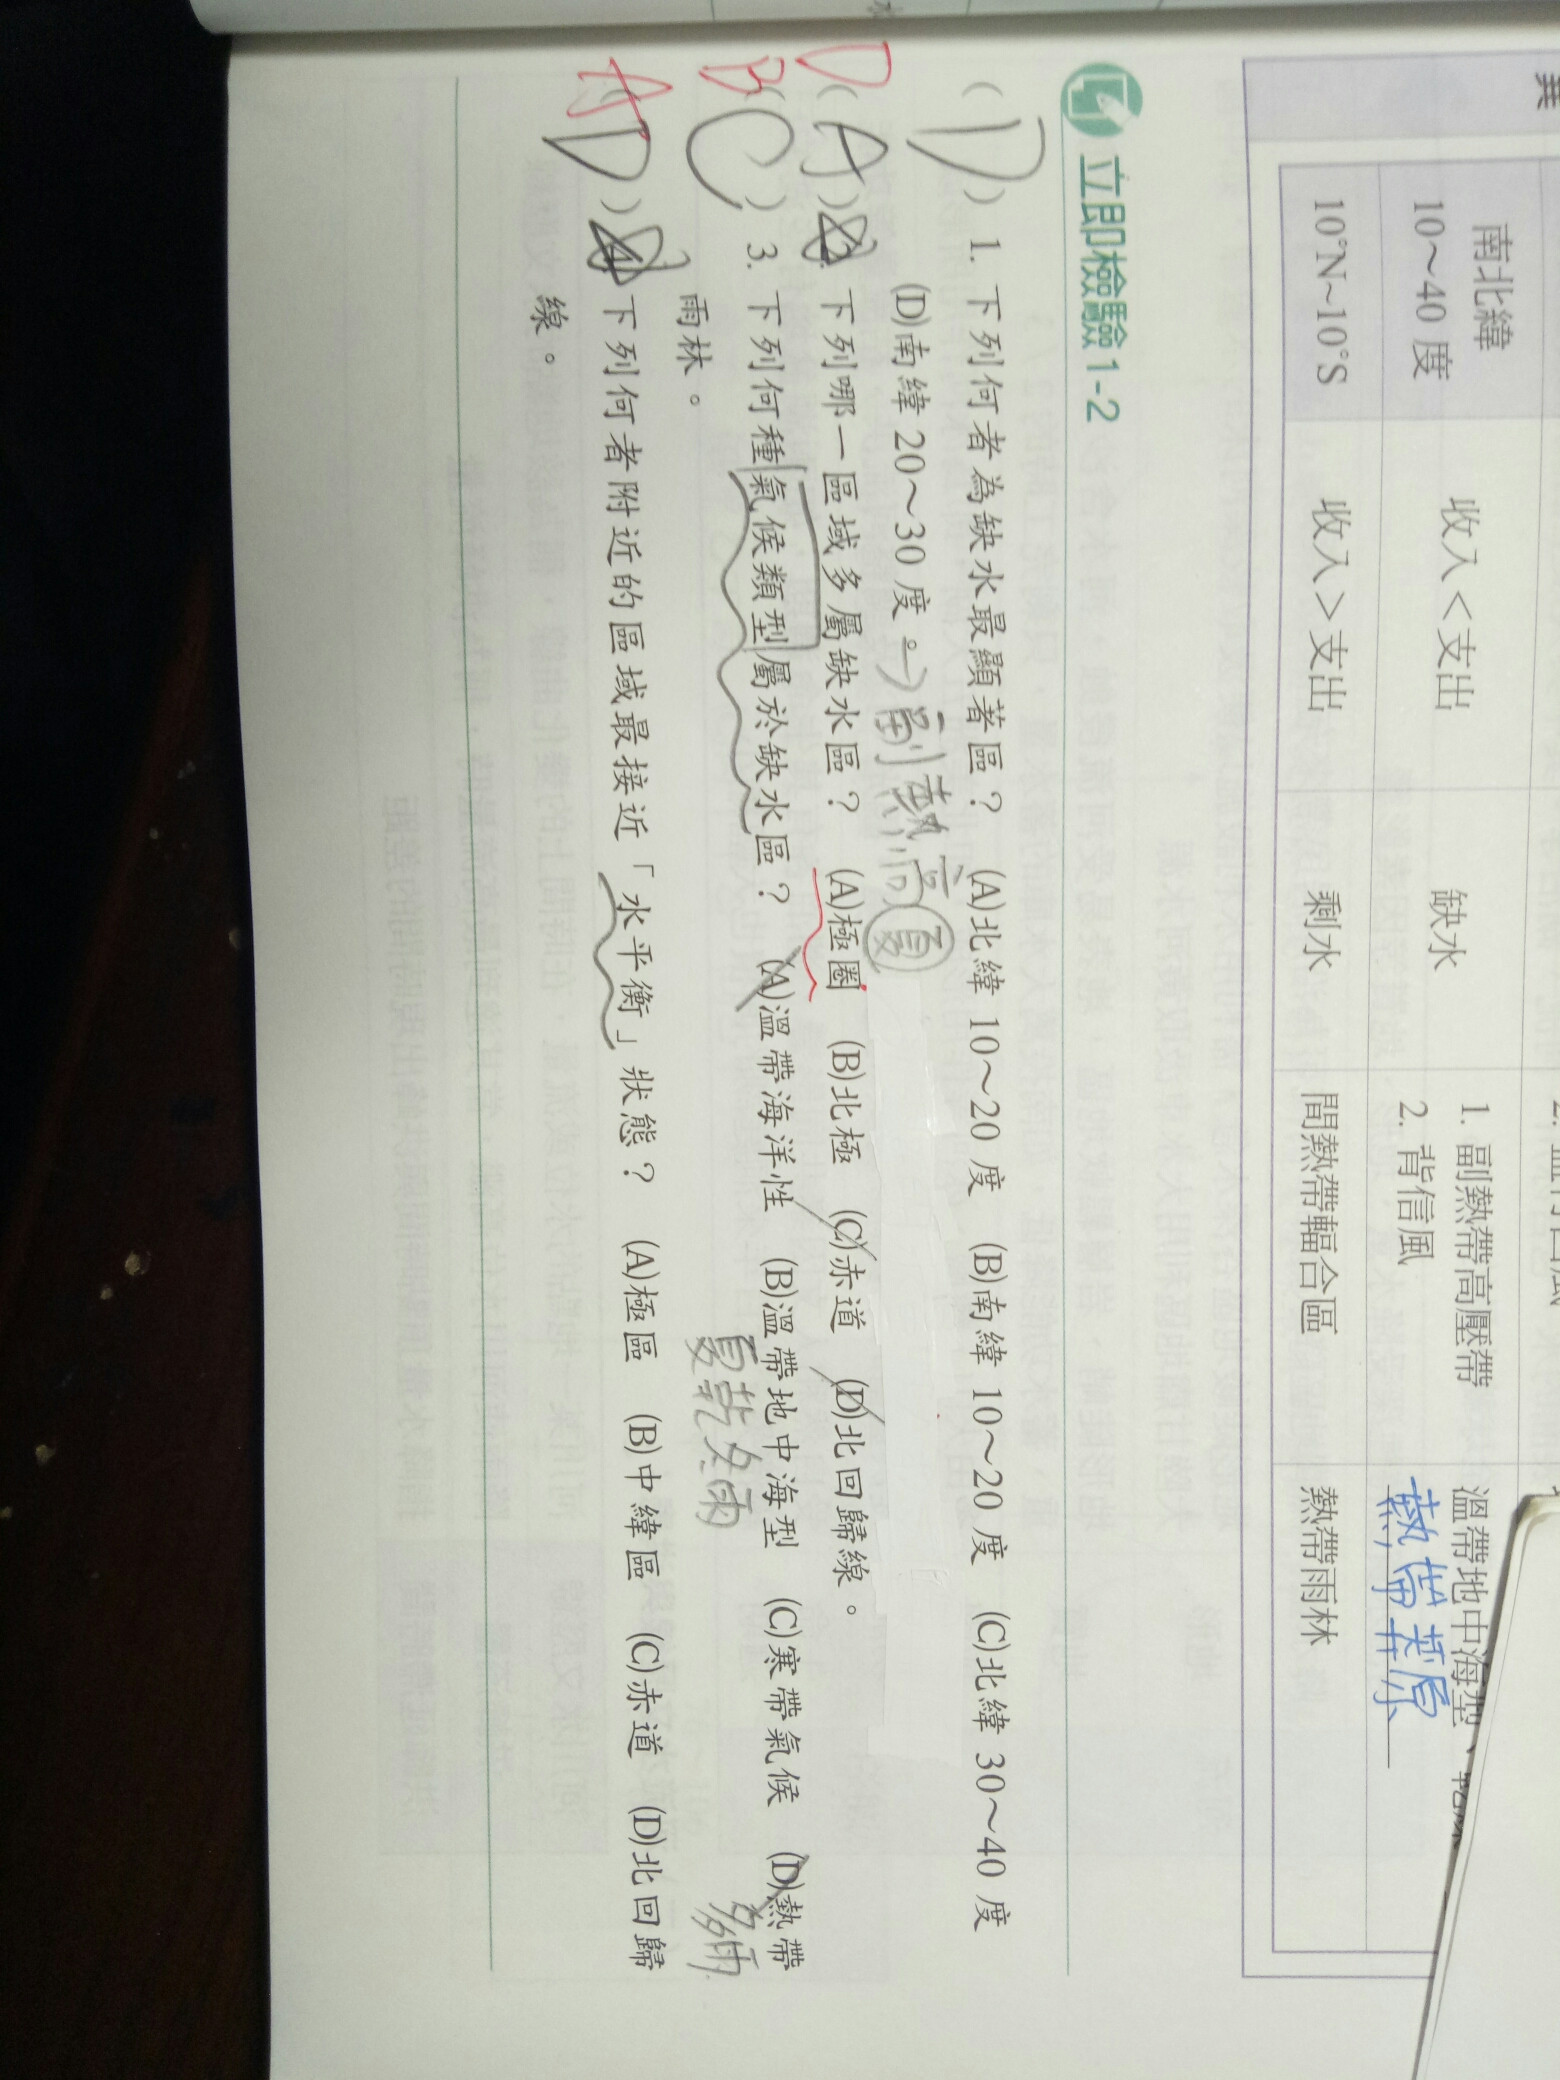 異
南北緯
10～40 度
收入＜支出
缺水
1. 副熱帶高壓帶
2. 背信風
溫帶地中海型、
熱帶莽原
10°N~10°S
收入＞支出
剩水
間熱帶輻合區
熱帶雨林
立即檢驗 1-2
( D ) 1. 下列何者為缺水最顯著區？ (A)北緯 10～20 度 (B)南緯 10～20 度 (C)北緯 30～40 度
(D)南緯 20～30 度。→副熱高夏
D ( A ) 2. 下列哪一區域多屬缺水區？ (A)極圈 (B)北極 (C)赤道 (D)北回歸線。
B ( C ) 3. 下列何種氣候類型屬於缺水區？ (A)溫帶海洋性 (B)溫帶地中海型 (C)寒帶氣候 (D)熱帶
雨林。 夏乾冬雨 多雨
A ( D ) 4. 下列何者附近的區域最接近「水平衡」狀態？ (A)極區 (B)中緯區 (C)赤道 (D)北回歸
線。